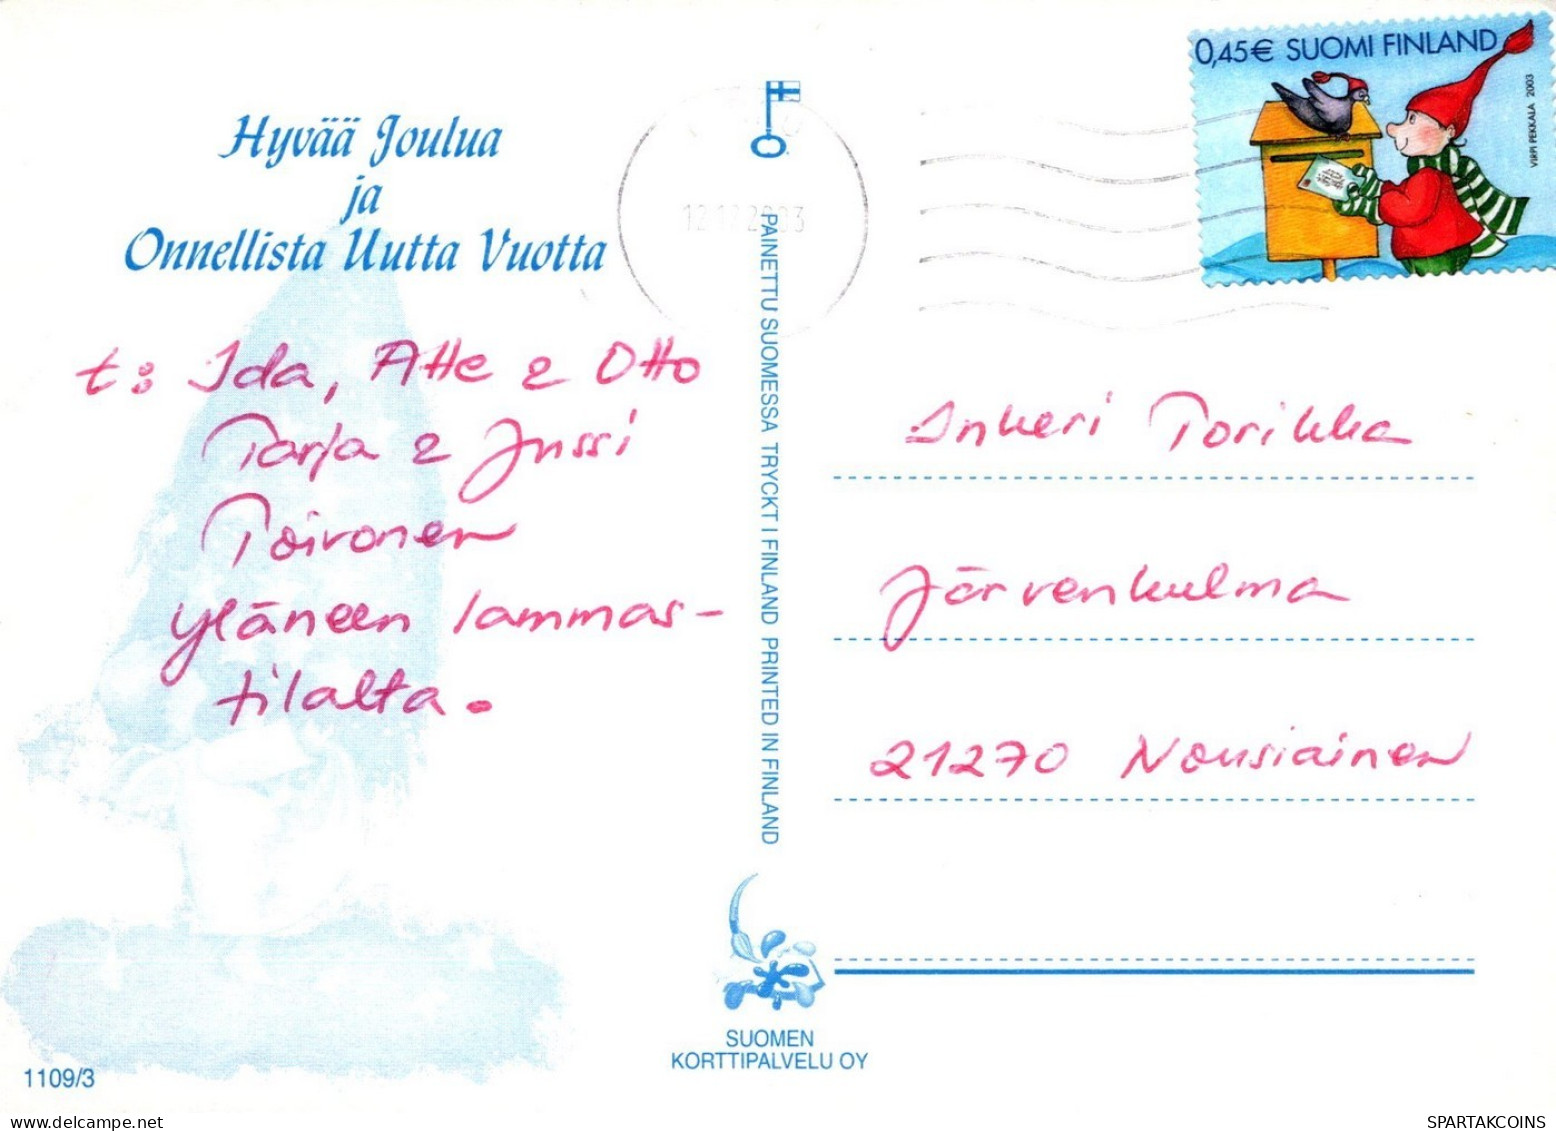 Hyvää Joulua
ja
Onnellista Uutta Vuotta
t: Ida, Atte & Otto
Tarja & Jussi
Toivonen
Yläneen lammas-
tilalta.
1109/3
PAINETTU SUOMESSA TRYCKT I FINLAND PRINTED IN FINLAND
SUOMEN
KORTTIPALVELU OY
0,45€ SUOMI FINLAND
VIRPI PEKKALA 2003
Inkeri Torikka
Järvenkulma
21270 Nousiainen
SPARTAKCOINS